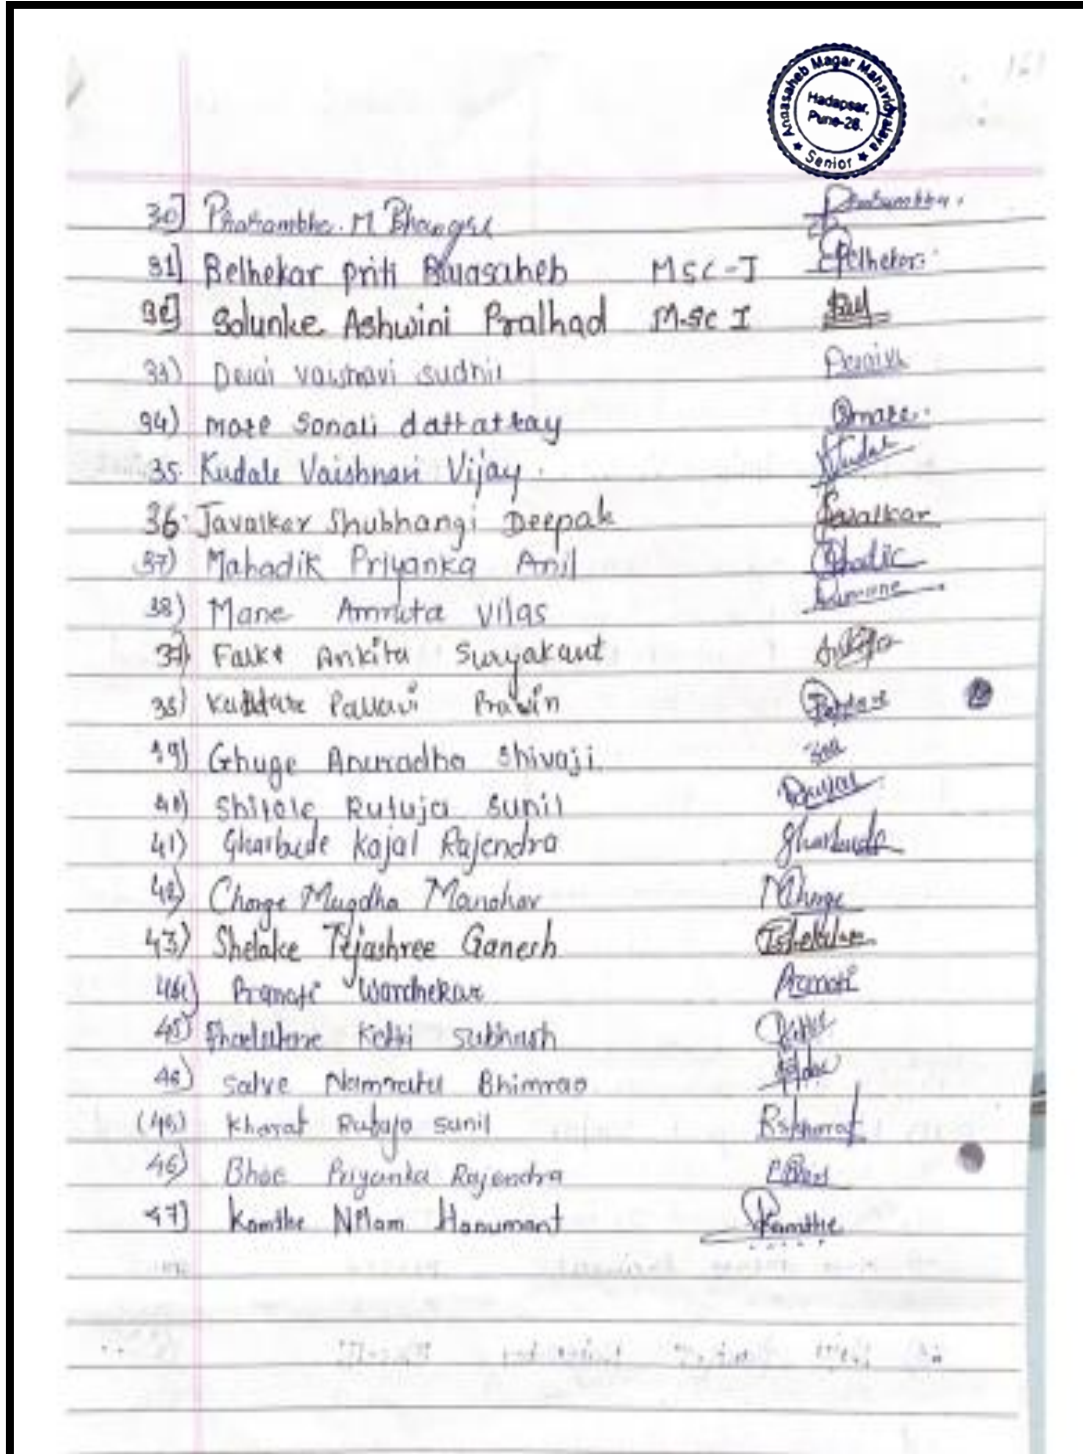 Annasaheb Magar Mahavidyalaya
Hadapsar,
Pune-28.
★ Senior ★
30] M
31] Belhekar priti Buasaheb MSC-I Belhekar
32] Solunke Ashwini Pralhad M.sc I
33) Desai vaishnavi sudhir
34) more Sonali dattatray Smore.
35 Kudale Vaishnavi Vijay.
36. Javalkar Shubhangi Deepak Javalkar
(37) Mahadik Priyanka Anil
38) Mane Amruta Vilas
37) Ankita Suryakant Ankita
38) Pallavi Pravin
39) Ghuge Anuradha Shivaji.
40) Shitole Rutuja Sunil
41) Gharbude Kajal Rajendra Gharbude
42) Chorge Mugdha Manohar
43) Shelake Tejashree Ganesh
44) Pranoti Wardhekar Pranoti
45) Ketki Subhash
46) Salve Namrata Bhimrao
(46) Kharat Rutuja sunil Rskharat
46) Bhoe Priyanka Rajendra
47] Kamthe Nilam Hanumant Kamthe